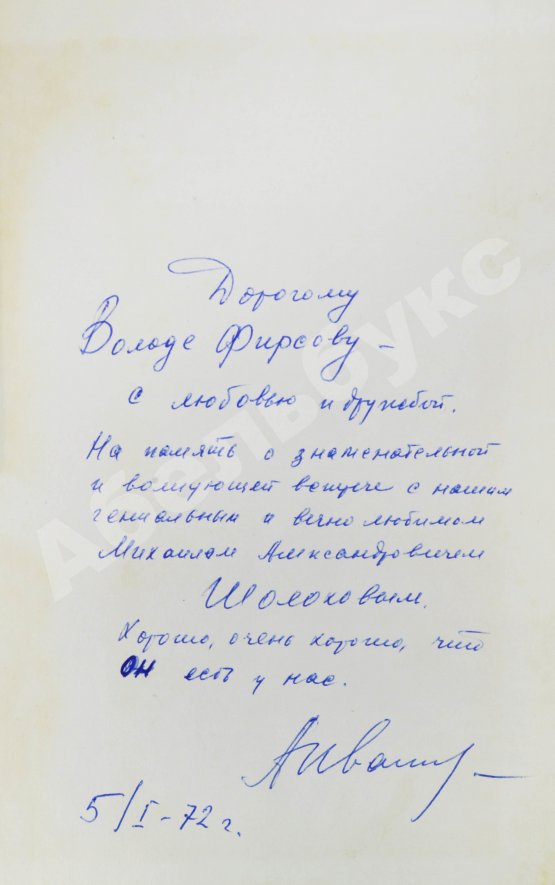 Дорогому
Володе Фирсову –
с любовью и дружбой.
На память о знаменательной
и волнующей встрече с нашим
гениальным и вечно любимом
Михаилом Александровичем
Шолоховым.
Хорошо, очень хорошо, что
он есть у нас.
АИванов
5/I-72 г.
Абельбукс